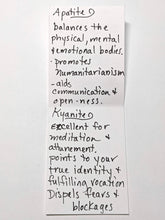 Apatite
balances the
physical, mental
& emotional bodies.
- promotes
humanitarianism
- aids
communication &
open-ness.
Kyanite
Excellent for
meditation &
attunement,
points to your
true identity &
fulfilling vocation
Dispels fears &
blockages